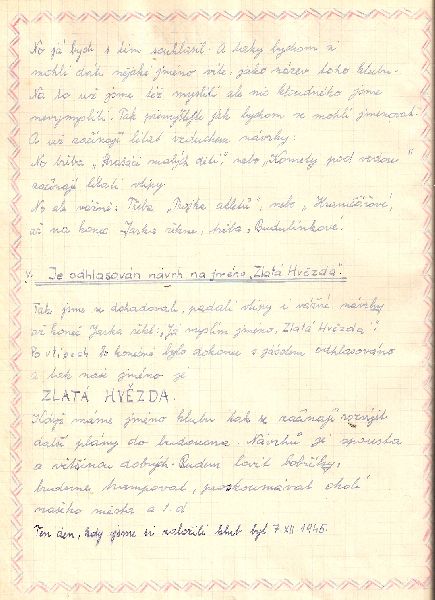 No já bych s tím souhlasil. A taky bychom si
mohli dáti nějaké jméno víte, jako název toho klubu.
Na to už jsme též myslili ale nic kloudného jsme
nevymyslili. Tak přemýšlejte jak bychom se mohli jmenovat.
A už začínají lítat vzduchem návrhy:
No třeba „Strašáci malých dětí" nebo „Komety pod vodou"
začínají lítati vtipy.
No ale vážně: Třeba „Trojka atletů", nebo „Hraničářové,
až na konec Jarka řekne, třeba „Budulínkové".
Je odhlasován návrh na jméno „Zlatá Hvězda".
Tak jsme se dohadovali, padali vtipy i vážné návrhy
až konec Jarka řekl: „Já myslím jméno „Zlatá Hvězda"!
Po vtipech to konečně bylo dokonce s jásotem odhlasováno
a tak naše jméno je
ZLATÁ HVĚZDA.
Když máme jméno klubu tak se začínají rozvíjet
další plány do budoucna. Návrhů je spousta
a většinou dobrých. Budem lovit bobříky,
budeme trampovat, prozkoumávat okolí
našeho města a t. d
Ten den, kdy jsme si založili klub byl 7 XII 1945.